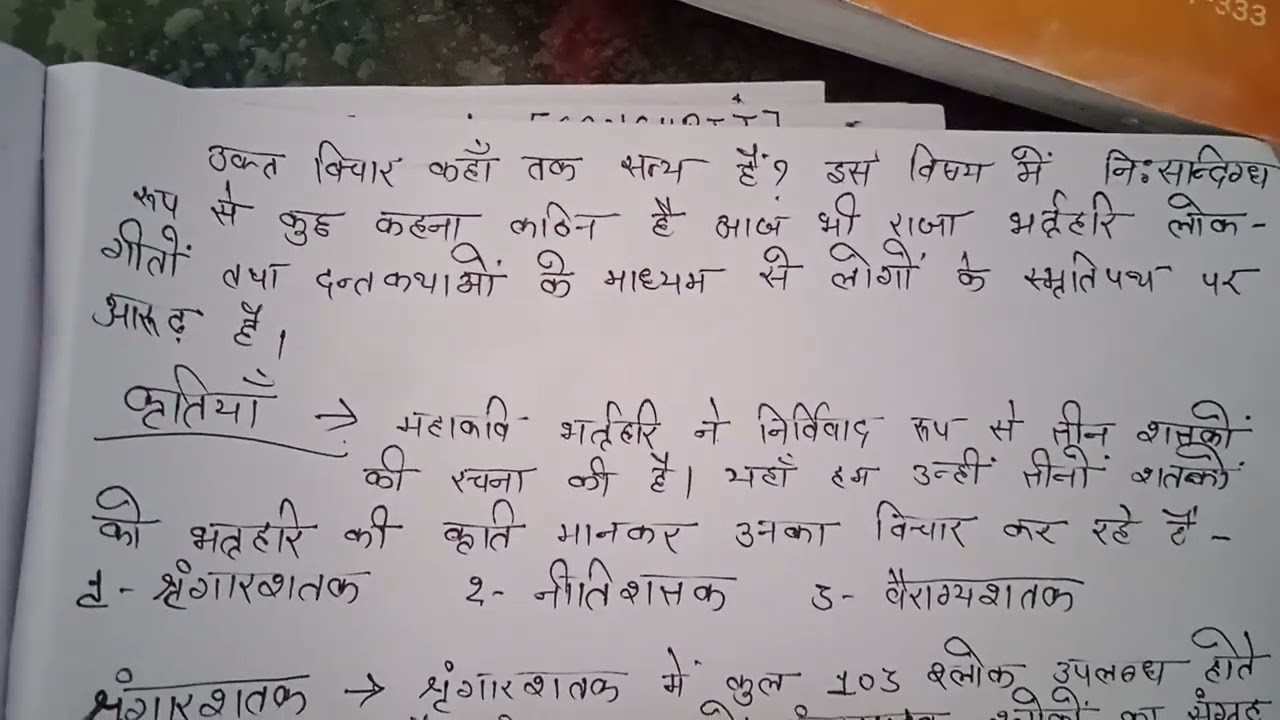 333
उक्त विचार कहाँ तक सत्य हैं? इस विषय में निःसन्दिग्ध
रूप से कुछ कहना कठिन है आज भी राजा भर्तृहरि लोक-
गीतों तथा दन्तकथाओं के माध्यम से लोगों के स्मृतिपथ पर
आरूढ़ हैं।
कृतियाँ → महाकवि भर्तृहरि ने निर्विवाद रूप से तीन शतकों
की रचना की है। यहाँ हम उन्हीं तीनों शतकों
को भर्तृहरि की कृति मानकर उनका विचार कर रहे हैं -
1- श्रृंगारशतक 2- नीतिशतक 3- वैराग्यशतक
श्रृंगारशतक → श्रृंगारशतक में कुल 103 श्लोक उपलब्ध होते
श्लोकों का संग्रह